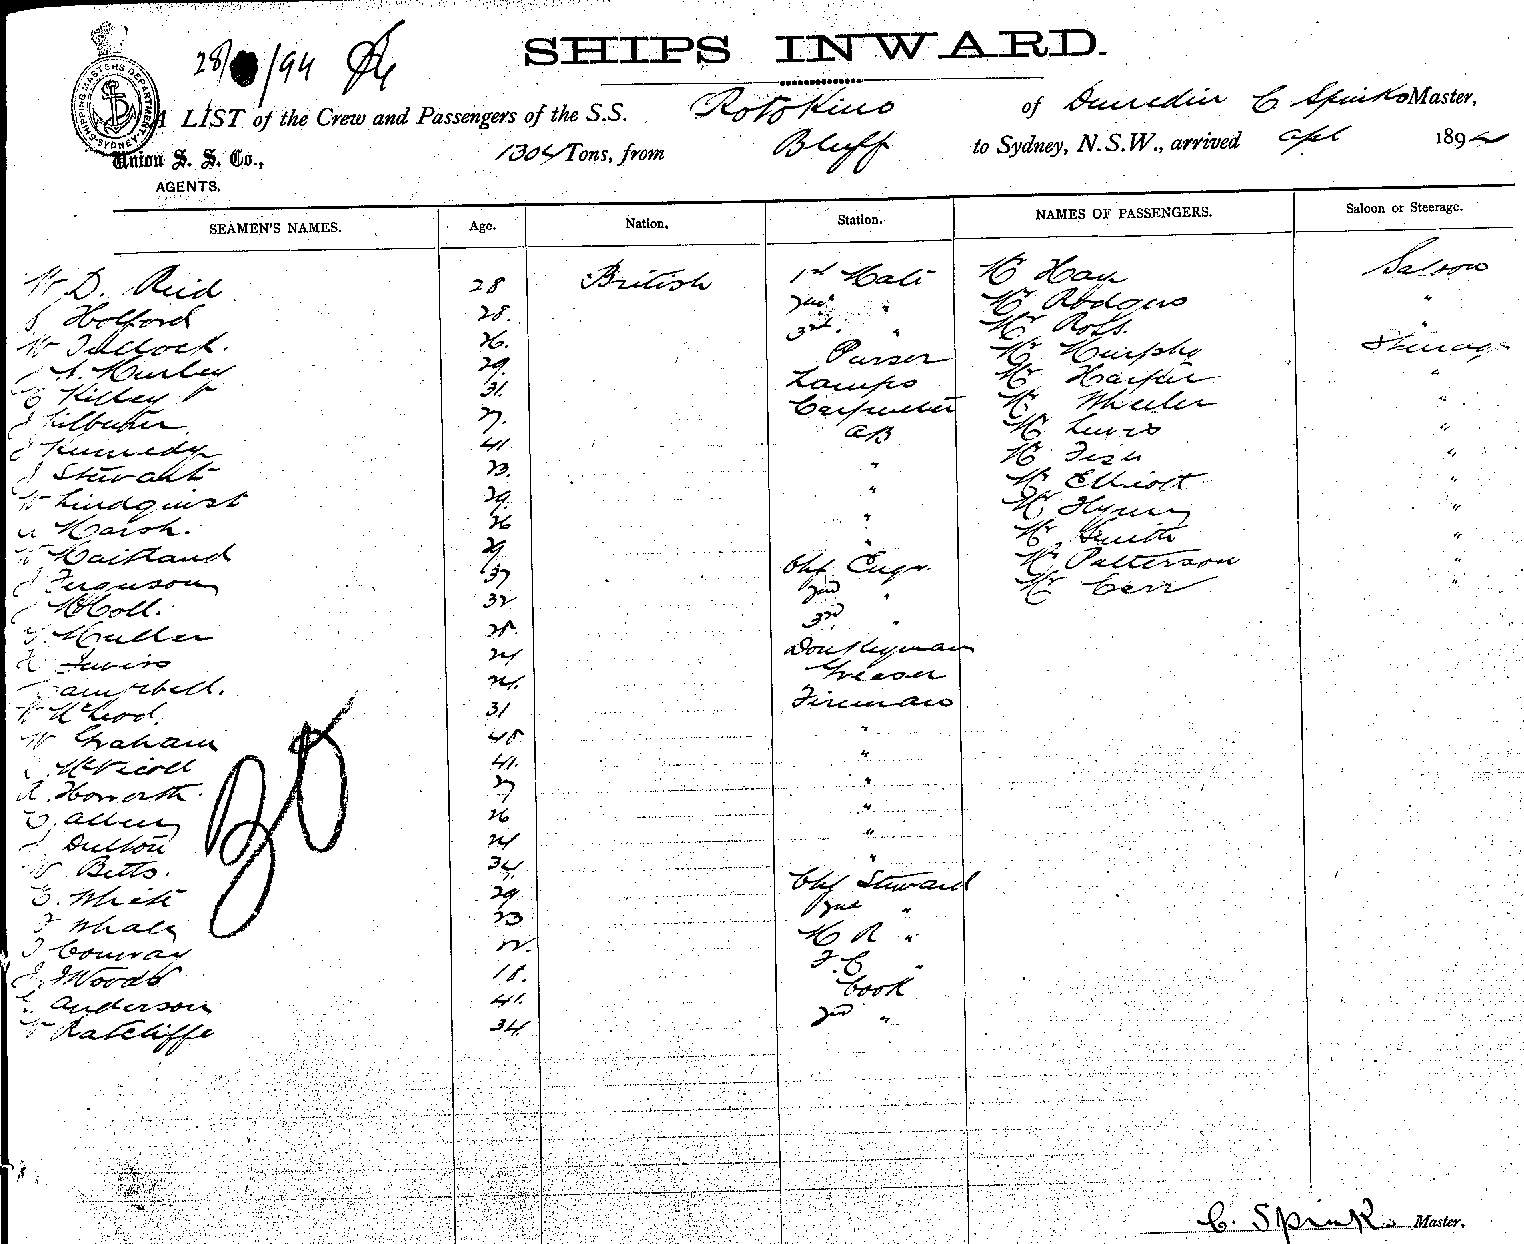 28/ /94
SHIPS INWARD.
SHIPPING MASTERS DEPARTMENT SYDNEY
A LIST of the Crew and Passengers of the S.S. Rotokino of Dunedin C Spinks Master,
Union S. S. Co., 1304 Tons, from Bluff to Sydney, N.S.W., arrived Apl 1894
AGENTS.
SEAMEN'S NAMES. Age. Nation. Station. NAMES OF PASSENGERS. Saloon or Steerage.
W D. Reid 28 British 1st Mate Mr Hay Saloon
Holford 28. 2nd " Mr Rodgers "
W Tullock. 26. 3rd. " Mr Ross "
A. Hurley 29 Purser Mr Murphy Steerage
Killey 31 Lamps Mr Harper "
Kilbuten 27. Carpenter Mr Wheeler "
J Kennedy 41 AB Mr Lewis "
J Stewart 23. " Mr Fish "
W Lindquist 29 " Mr Elliott "
Marsh. 26 " Mr Flynn "
W Maitland 29 " Mr Smith "
J Ferguson 37 Chf Engr. Mr Patterson "
McColl. 32 2nd " Mr Carr "
Muller 28. 3rd "
Lewis 24 Donkeyman
Campbell. 24. Greaser
McLeod. 31 Fireman
W Graham 48 "
McNicoll 41. "
A. Howorth. 27 "
Allen 26 "
Dutton 24 "
W Betts. 34. "
E. White 29 Chf Steward
F Whaly 23 2nd "
J Conway 22. M R "
J Woods 18. F.C "
Anderson 41. Cook
W Ratcliffe 34 2nd "
C. Spink. Master.